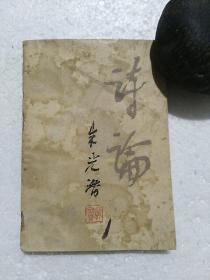 诗論
朱光潜